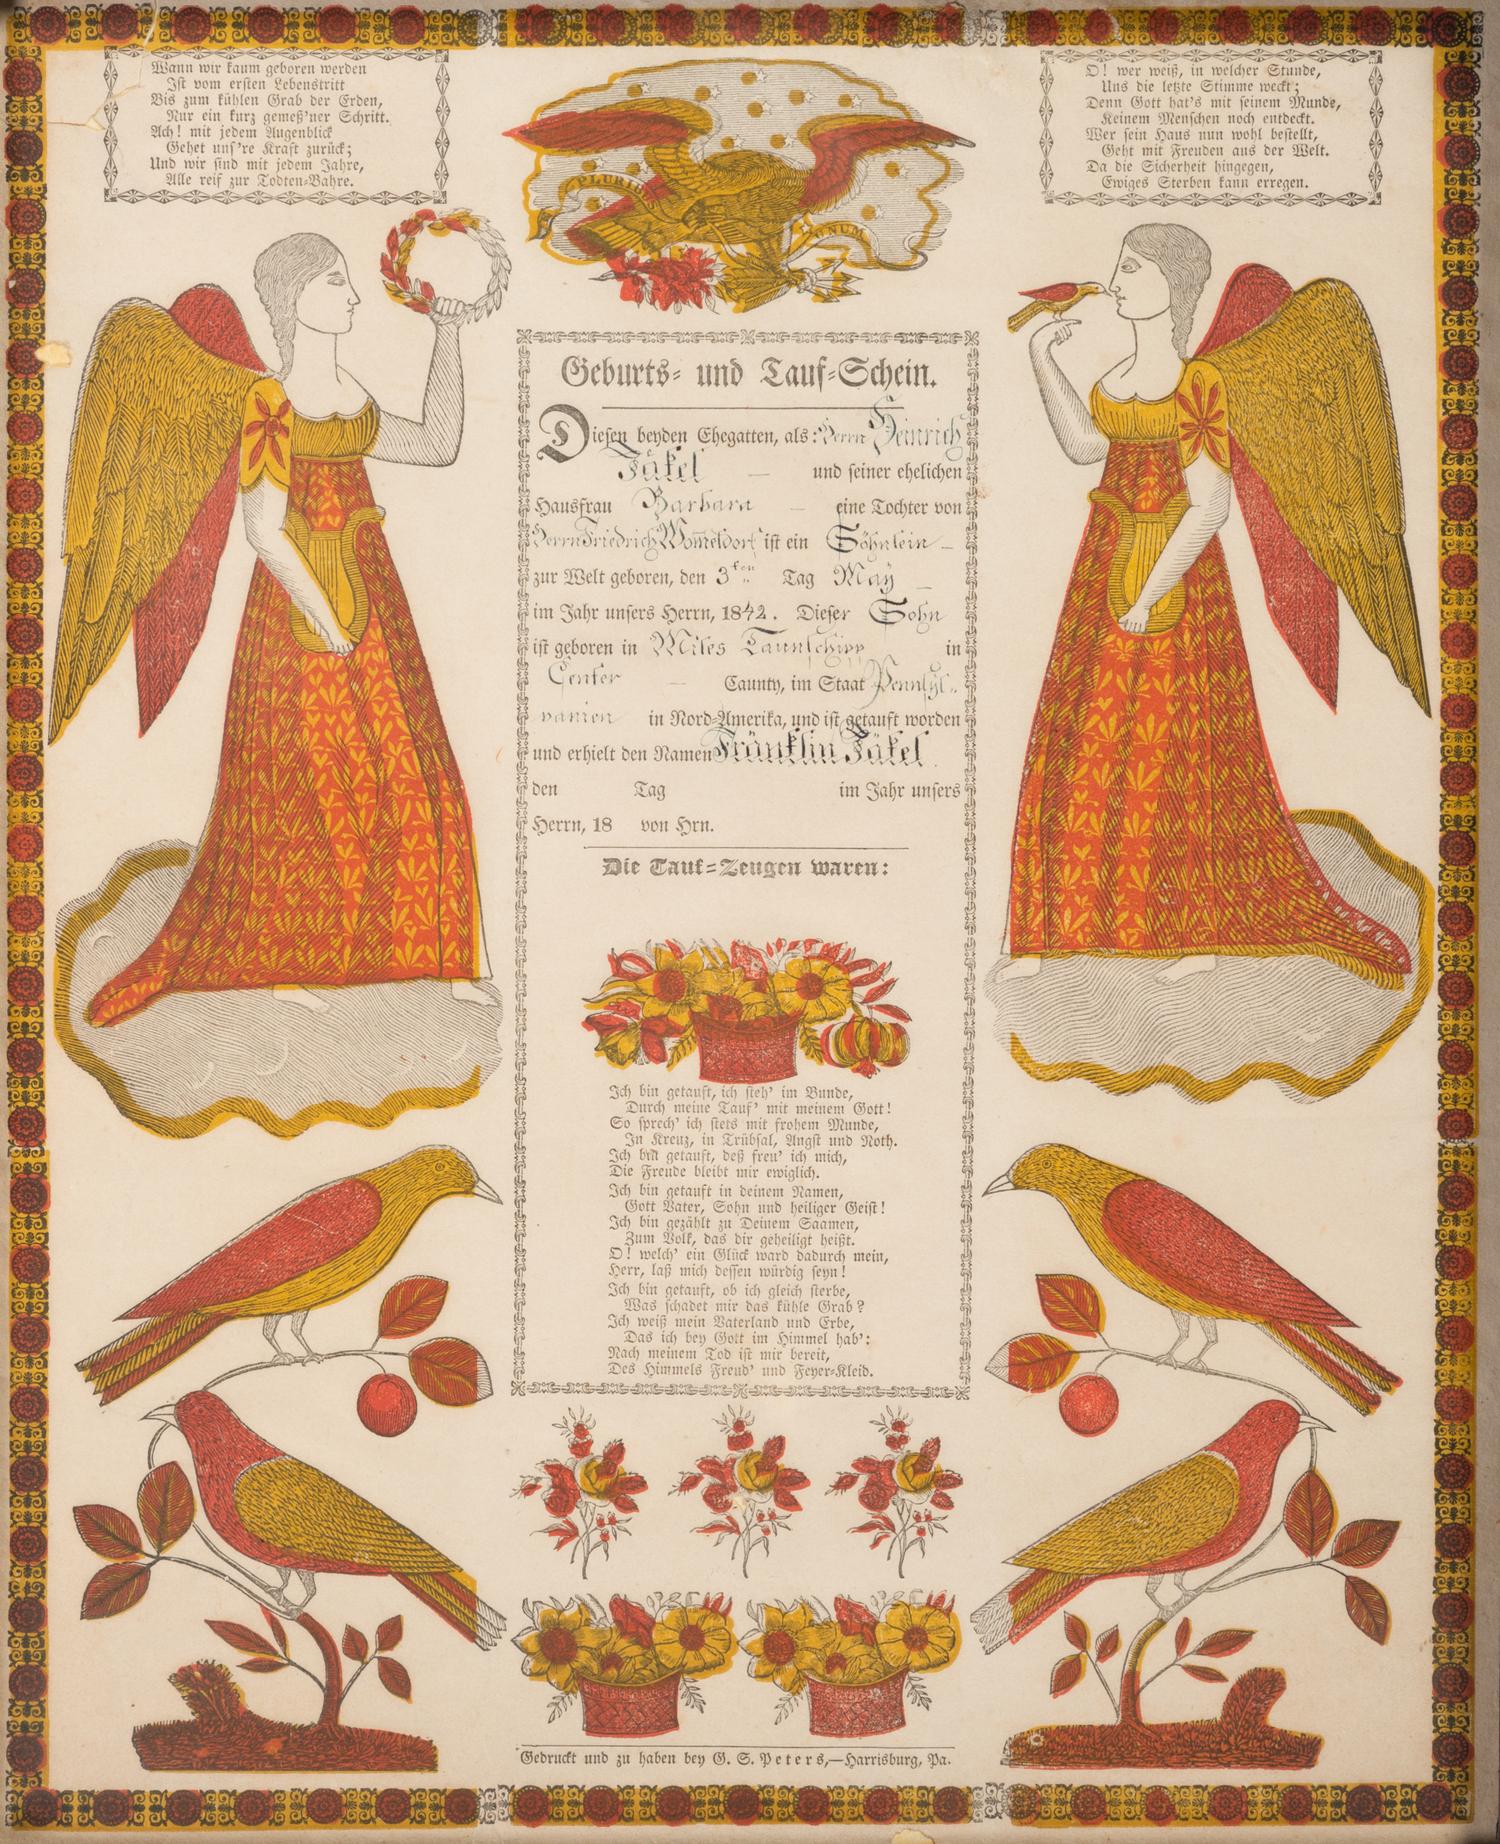 Wann wir kaum geboren werden
Ist vom ersten Lebenstritt
Bis zum kühlen Grab der Erden,
Nur ein kurz gemeß'ner Schritt.
Ach! mit jedem Augenblick
Gehet uns're Kraft zurück;
Und wir sind mit jedem Jahre,
Alle reif zur Todten-Bahre.
E PLURIBUS
UNUM
O! wer weiß, in welcher Stunde,
Uns die letzte Stimme weckt;
Denn Gott hat's mit seinem Munde,
Keinem Menschen noch entdeckt.
Wer sein Haus nun wohl bestellt,
Geht mit Freuden aus der Welt.
Da die Sicherheit hingegen,
Ewiges Sterben kann erregen.
Geburts- und Tauf-Schein.
Diesen beyden Ehegatten, als: Herrn Heinrich
Jäkel — und seiner ehelichen
Hausfrau Barbara — eine Tochter von
Herrn Friedrich Wom̅eldorf ist ein Söhnlein —
zur Welt geboren, den 3ten Tag May —
im Jahr unsers Herrn, 1842. Dieser Sohn
ist geboren in Miles Taunschipp in
Center — Caunty, im Staat Pennsyl-
vanien in Nord-Amerika, und ist getauft worden
und erhielt den Namen Fränklin Jäkel.
den Tag im Jahr unsers
Herrn, 18 von Hrn.
Die Tauf-Zeugen waren:
Ich bin getauft, ich steh' im Bunde,
Durch meine Tauf' mit meinem Gott!
So sprech' ich stets mit frohem Munde,
In Kreuz, in Trübsal, Angst und Noth.
Ich bin getauft, deß freu' ich mich,
Die Freude bleibt mir ewiglich.
Ich bin getauft in deinem Namen,
Gott Vater, Sohn und heiliger Geist!
Ich bin gezählt zu Deinem Saamen,
Zum Volk, das dir geheiligt heißt.
O! welch' ein Glück ward dadurch mein,
Herr, laß mich dessen würdig seyn!
Ich bin getauft, ob ich gleich sterbe,
Was schadet mir das kühle Grab?
Ich weiß mein Vaterland und Erbe,
Das ich bey Gott im Himmel hab':
Nach meinem Tod ist mir bereit,
Des Himmels Freud' und Feyer-Kleid.
Gedruckt und zu haben bey G. S. Peters,—Harrisburg, Pa.